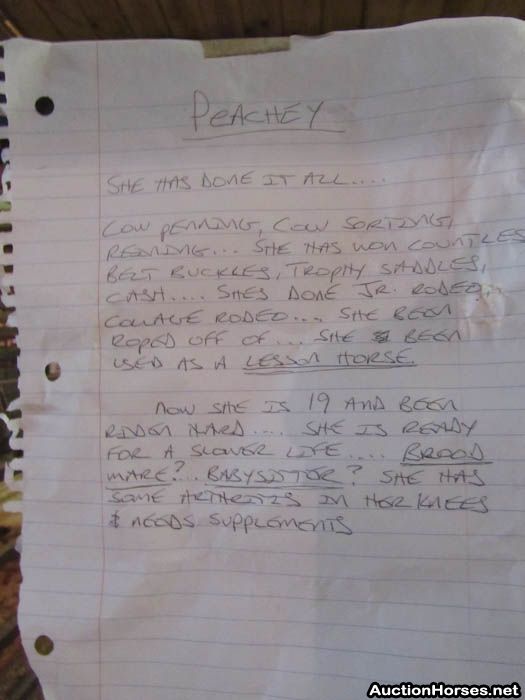 PEACHEY
SHE HAS DONE IT ALL....
COW PENNING, COW SORTING,
REINING... SHE HAS WON COUNTLES
BELT BUCKLES, TROPHY SADDLES,
CASH.... SHES DONE JR. RODEO..
COLLAGE RODEO... SHE BEEN
ROPED OFF OF... SHE BEEN
USED AS A LESSON HORSE.
NOW SHE IS 19 AND BEEN
RIDDEN HARD.... SHE IS READY
FOR A SLOWER LIFE..... BROOD
MARE?... BABYSISTOR? SHE HAS
SOME ARTHRITIS IN HER KNEES
& NEEDS SUPPLEMENTS
AuctionHorses.net